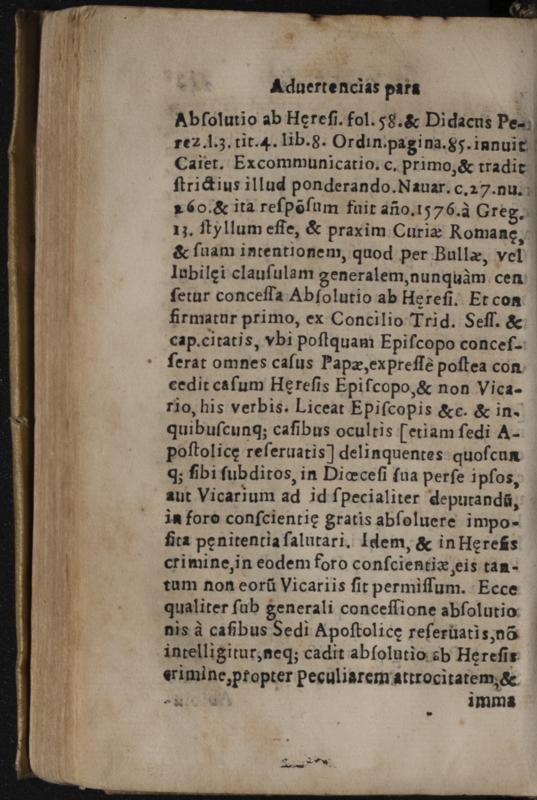 Aduertencias para
Absolutio ab Hęresi. fol. 58. & Didacus Pe-
rez. l. 3. tit. 4. lib. 8. Ordin. pagina. 85. innuit
Caiet. Excommunicatio. c. primo, & tradit
strictius illud ponderando. Nauar. c. 27. nu.
260. & ita respōsum fuit año. 1576. à Greg.
13. styllum esse, & praxim Curiæ Romanę,
& suam intentionem, quod per Bullæ, vel
Iubilęi clausulam generalem, nunquàm cen
setur concessa Absolutio ab Hęresi. Et con
firmatur primo, ex Concilio Trid. Sess. &
cap. citatis, vbi postquam Episcopo conces-
serat omnes casus Papæ, expressè postea con
cedit casum Hęresis Episcopo, & non Vica-
rio, his verbis. Liceat Episcopis &c. & in-
quibuscunq; casibus ocultis [etiam sedi A-
postolicę reseruatis] delinquentes quoscun
q; sibi subditos, in Diœcesi sua per se ipsos,
aut Vicarium ad id specialiter deputandū,
in foro conscientię gratis absoluere impo-
sita pęnitentia salutari. Idem, & in Hęresis
crimine, in eodem foro conscientiæ, eis tan-
tum non eorū Vicariis sit permissum. Ecce
qualiter sub generali concessione absolutio
nis à casibus Sedi Apostolicę reseruatis, nō
intelligitur, neq; cadit absolutio ab Hęresis
crimine, propter peculiarem attrocitatem, &
imma